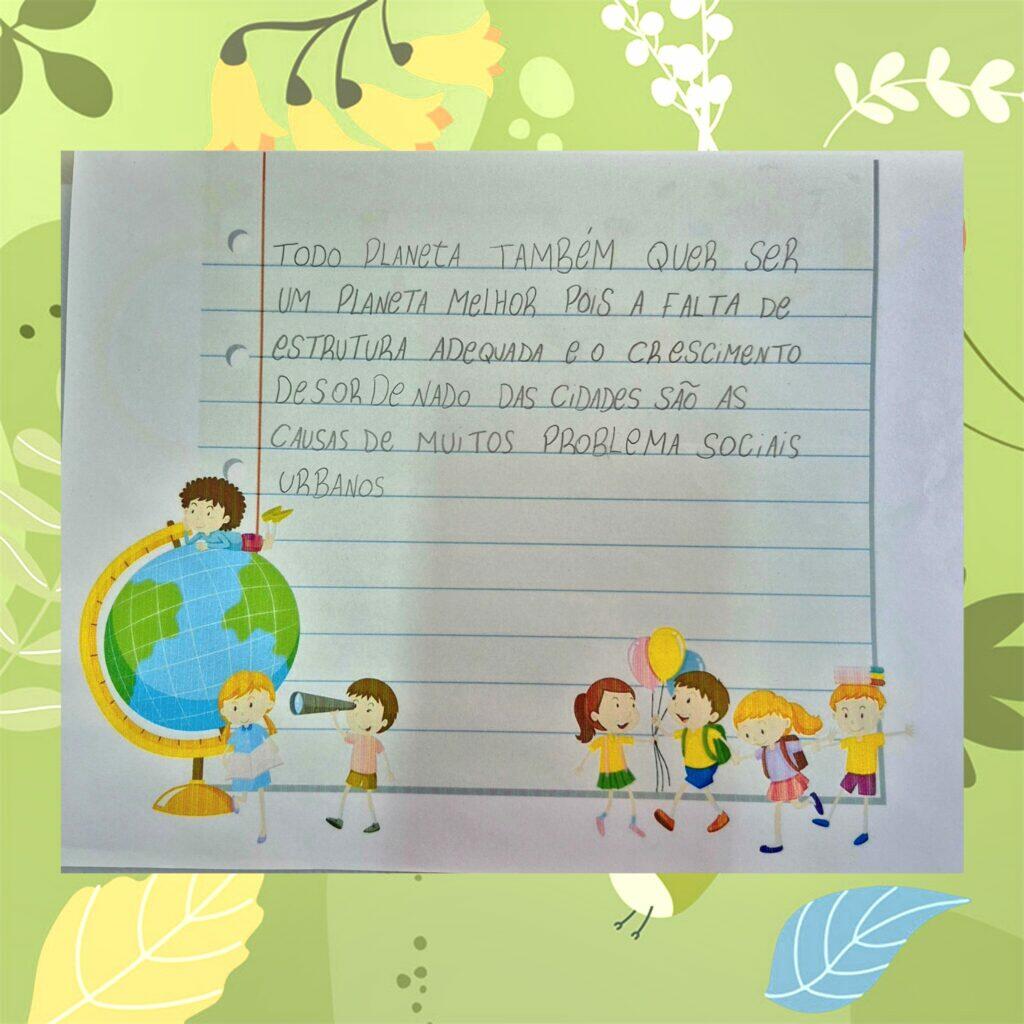 TODO PLANETA TAMBÉM QUER SER
UM PLANETA MELHOR POIS A FALTA DE
ESTRUTURA ADEQUADA E O CRESCIMENTO
DESORDENADO DAS CIDADES SÃO AS
CAUSAS DE MUITOS PROBLEMA SOCIAIS
URBANOS